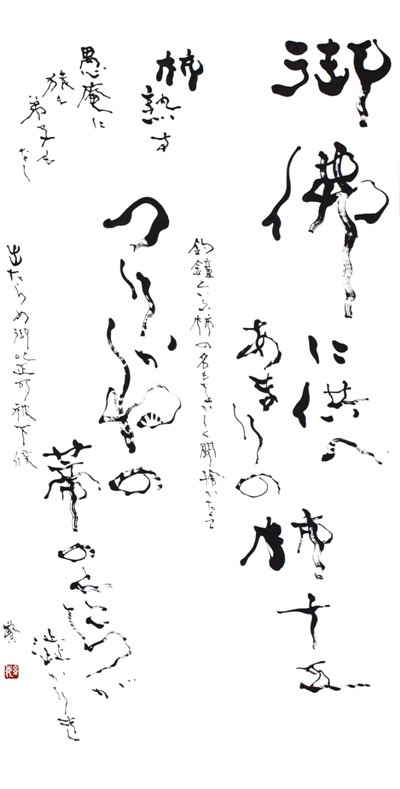 御佛
に供へ
あまりの
柿十五
柿熟す
愚庵に
猿も
弟子も
なし
釣鐘といふ柿の名もをかしく聞捨かたくて
つりかねの
蔕のところが
澁かりき
出たらめ御叱正可被下候